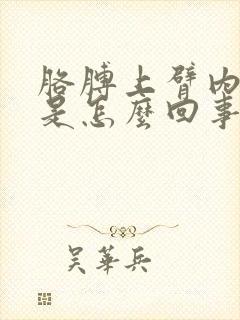 胳膊上臂内
是怎麼回事
吴華兵